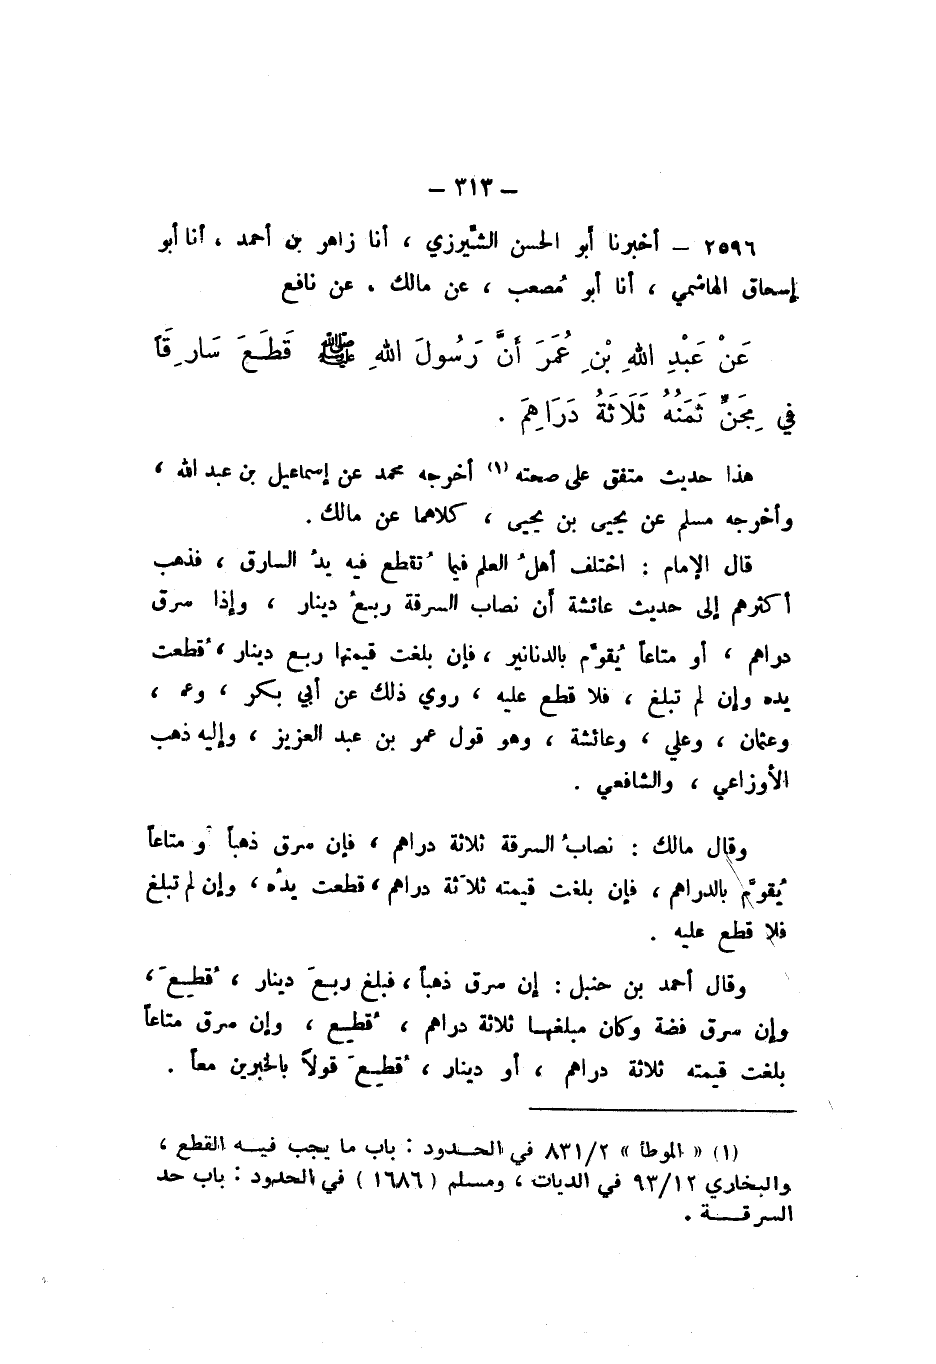 — ٣١٣ —
٢٥٩٦ — أخبرنا أبو الحسن الشِّيرزي ، أنا زاهر بن أحمد ، أنا أبو
إسحاق الهاشمي ، أنا أبو مُصعب ، عن مالك . عن نافع
عَنْ عَبْدِ اللهِ بْنِ عُمَرَ أَنَّ رَسُولَ اللهِ ﷺ قَطَعَ سَارِقَاً
فِي مِجَنٍّ ثَمَنُهُ ثَلَاثَةُ دَرَاهِمَ .
هذا حديث متفق على صحته (١) أخرجه محمد عن إسماعيل بن عبد الله ،
وأخرجه مسلم عن يحيى بن يحيى ، كلاهما عن مالك .
قال الإمام : اختلف أهلُ العلم فيما تُقطع فيه يدُ السارق ، فذهب
أكثرهم إلى حديث عائشة أن نصاب السرقة ربعُ دينار ، وإذا سرق
دراهم ، أو متاعاً يُقوَّم بالدنانير ، فإن بلغت قيمتها ربع دينار ، قُطعت
يده وإن لم تبلغ ، فلا قطع عليه ، روي ذلك عن أبي بكر ، وعمر ،
وعثمان ، وعلي ، وعائشة ، وهو قول عمر بن عبد العزيز ، وإليه ذهب
الأوزاعي ، والشافعي .
وقال مالك : نصابُ السرقة ثلاثة دراهم ، فإن سرق ذهباً أو متاعاً
يُقوَّم بالدراهم ، فإن بلغت قيمته ثلاثَة دراهم ، قطعت يدُه ، وإن لم تبلغ
فلا قطع عليه .
وقال أحمد بن حنبل : إن سرق ذهباً ، فبلغ ربعَ دينار ، قُطِعَ ،
وإن سرق فضة وكان مبلغها ثلاثة دراهم ، قُطِع ، وإن سرق متاعاً
بلغت قيمته ثلاثة دراهم ، أو دينار ، قُطِعَ قولاً بالخبرين معاً .
(١) « الموطأ » ٨٣١/٢ في الحدود : باب ما يجب فيه القطع ،
والبخاري ٩٣/١٢ في الديات ، ومسلم ( ١٦٨٦ ) في الحدود : باب حد
السرقة .